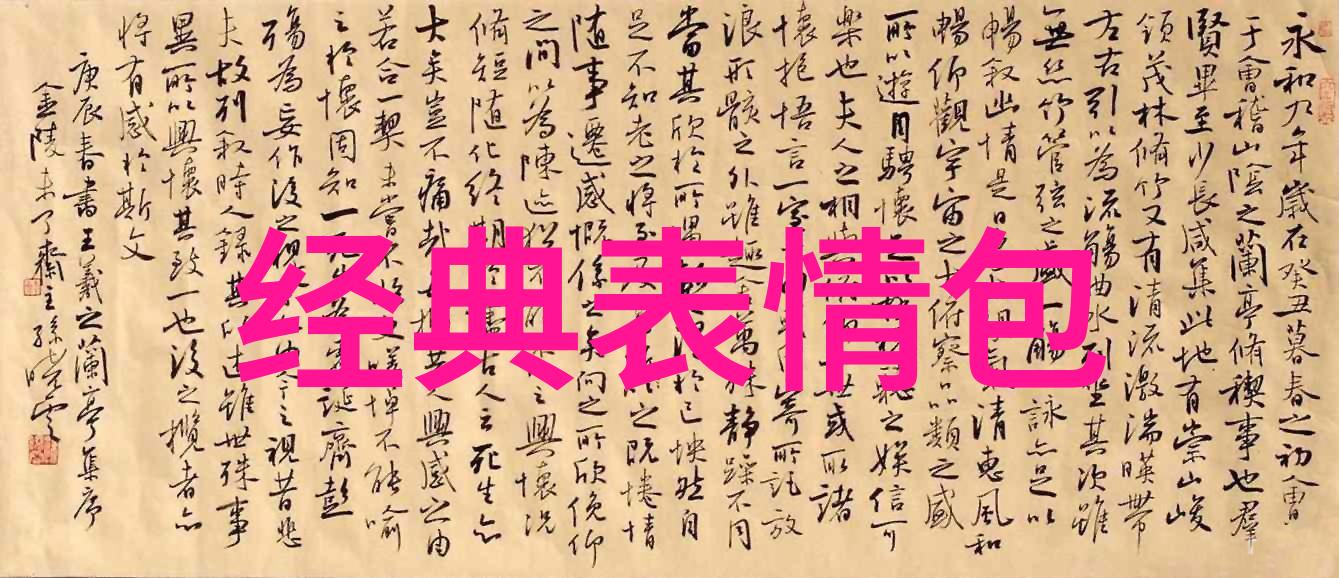 永和九年歲在癸丑暮春之初會
于會稽山陰之蘭亭脩稧事也羣
賢畢至少長咸集此地有崇山峻
領茂林脩竹又有清流激湍暎帶
左右引以為流觴曲水列坐其次雖
無絲竹管弦之盛一觴詠亦足以
暢叙幽情是日清惠風和
暢仰觀宇宙之大俯察品類之盛
所以遊目騁懷足以之娛信可
樂也夫人之相世或取諸
懷抱悟言一室寄所託放
浪形骸之外雖趣萬殊靜躁不同
當其欣於所遇得於己怏然自
足不知老之將至及之既惓情
随事遷感慨係之矣向之所欣俛仰
之間以為陳迹猶之興懷況
脩短随化終期於盡古人云死生亦
大矣豈不痛哉人興感之由
若合一契未嘗不文嗟悼不能喻
之於懷固知一死生為誕齊彭
殤為妄作後之視今之視昔悲
夫故列叙時人錄其所述雖世殊事
異所以興懷其致一也後之攬者亦
將有感於斯文
庚辰春書王羲之蘭亭集序
金陵未了齋主孫曉雲
经典表情包